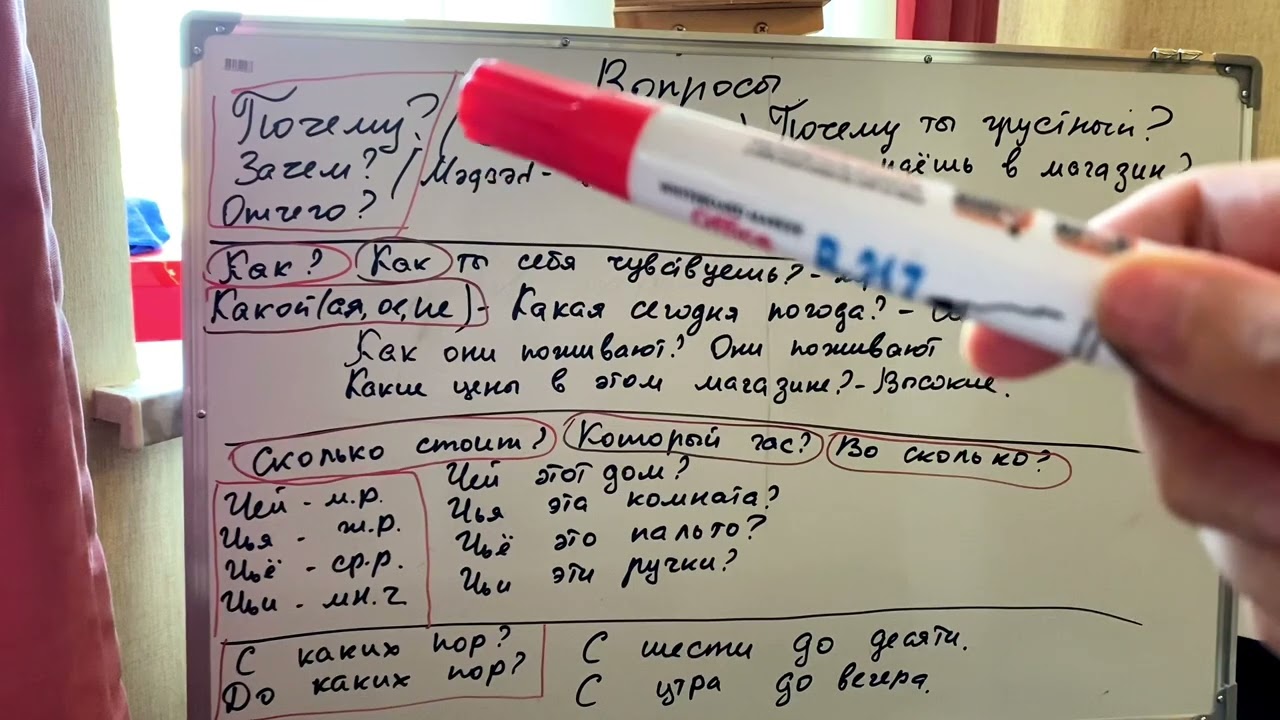 Вопросы
Почему? / Почему ты грустный?
Зачем? / Мэдээл- идёшь в магазин?
Отчего?
Как? Как ты себя чувствуешь? -
Какой(ая, ое, ие) - Какая сегодня погода? -
Как они поживают? Они поживают
Какие цены в этом магазине? - Высокие.
Сколько стоит? Который час? Во сколько?
Чей - м.р. Чей этот дом?
Чья - ж.р. Чья эта комната?
Чьё - ср.р. Чьё это пальто?
Чьи - мн.ч Чьи эти ручки?
С каких пор? С шести до десяти.
До каких пор? С утра до вечера.
Office